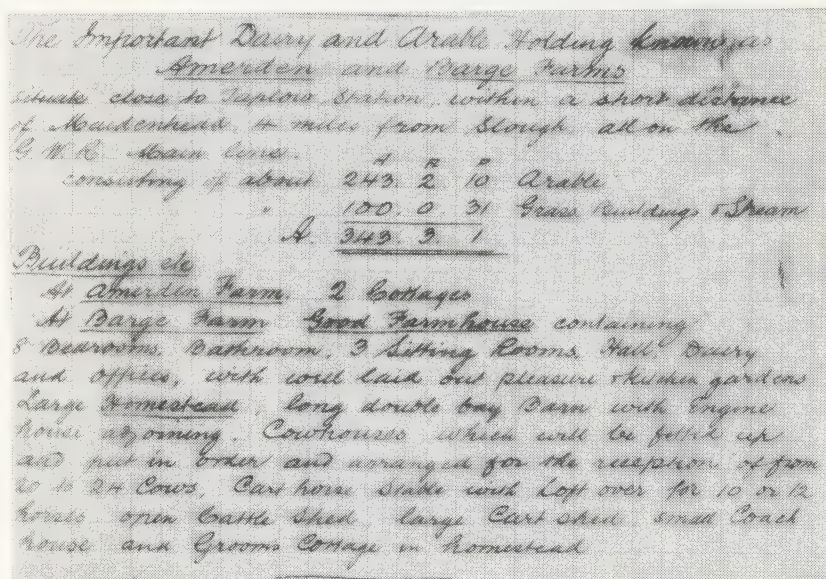 The Important Dairy and Arable Holding known as
Amerden and Barge Farms
situate close to Taplow Station, within a short distance
of Maidenhead, 4 miles from Slough, all on the
G. W. R. Main line.
A R P
consisting of about 243. 2 10 Arable
" 100. 0. 31 Grass, Buildings & Stream
A. 343. 3. 1
Buildings etc
At Amerden Farm. 2 Cottages
At Barge Farm Good Farmhouse containing
8 Bedrooms, Bathroom, 3 Sitting Rooms, Hall, Dairy
and offices, with well laid out pleasure & kitchen gardens
Large Homestead, long double bay Barn with Engine
house adjoining, Cowhouses which will be fitted up
and put in order and arranged for the reception of from
20 to 24 Cows, Cart horse Stable with Loft over for 10 or 12
horses open Cattle Shed large Cart shed small Coach
house and Grooms Cottage in homestead